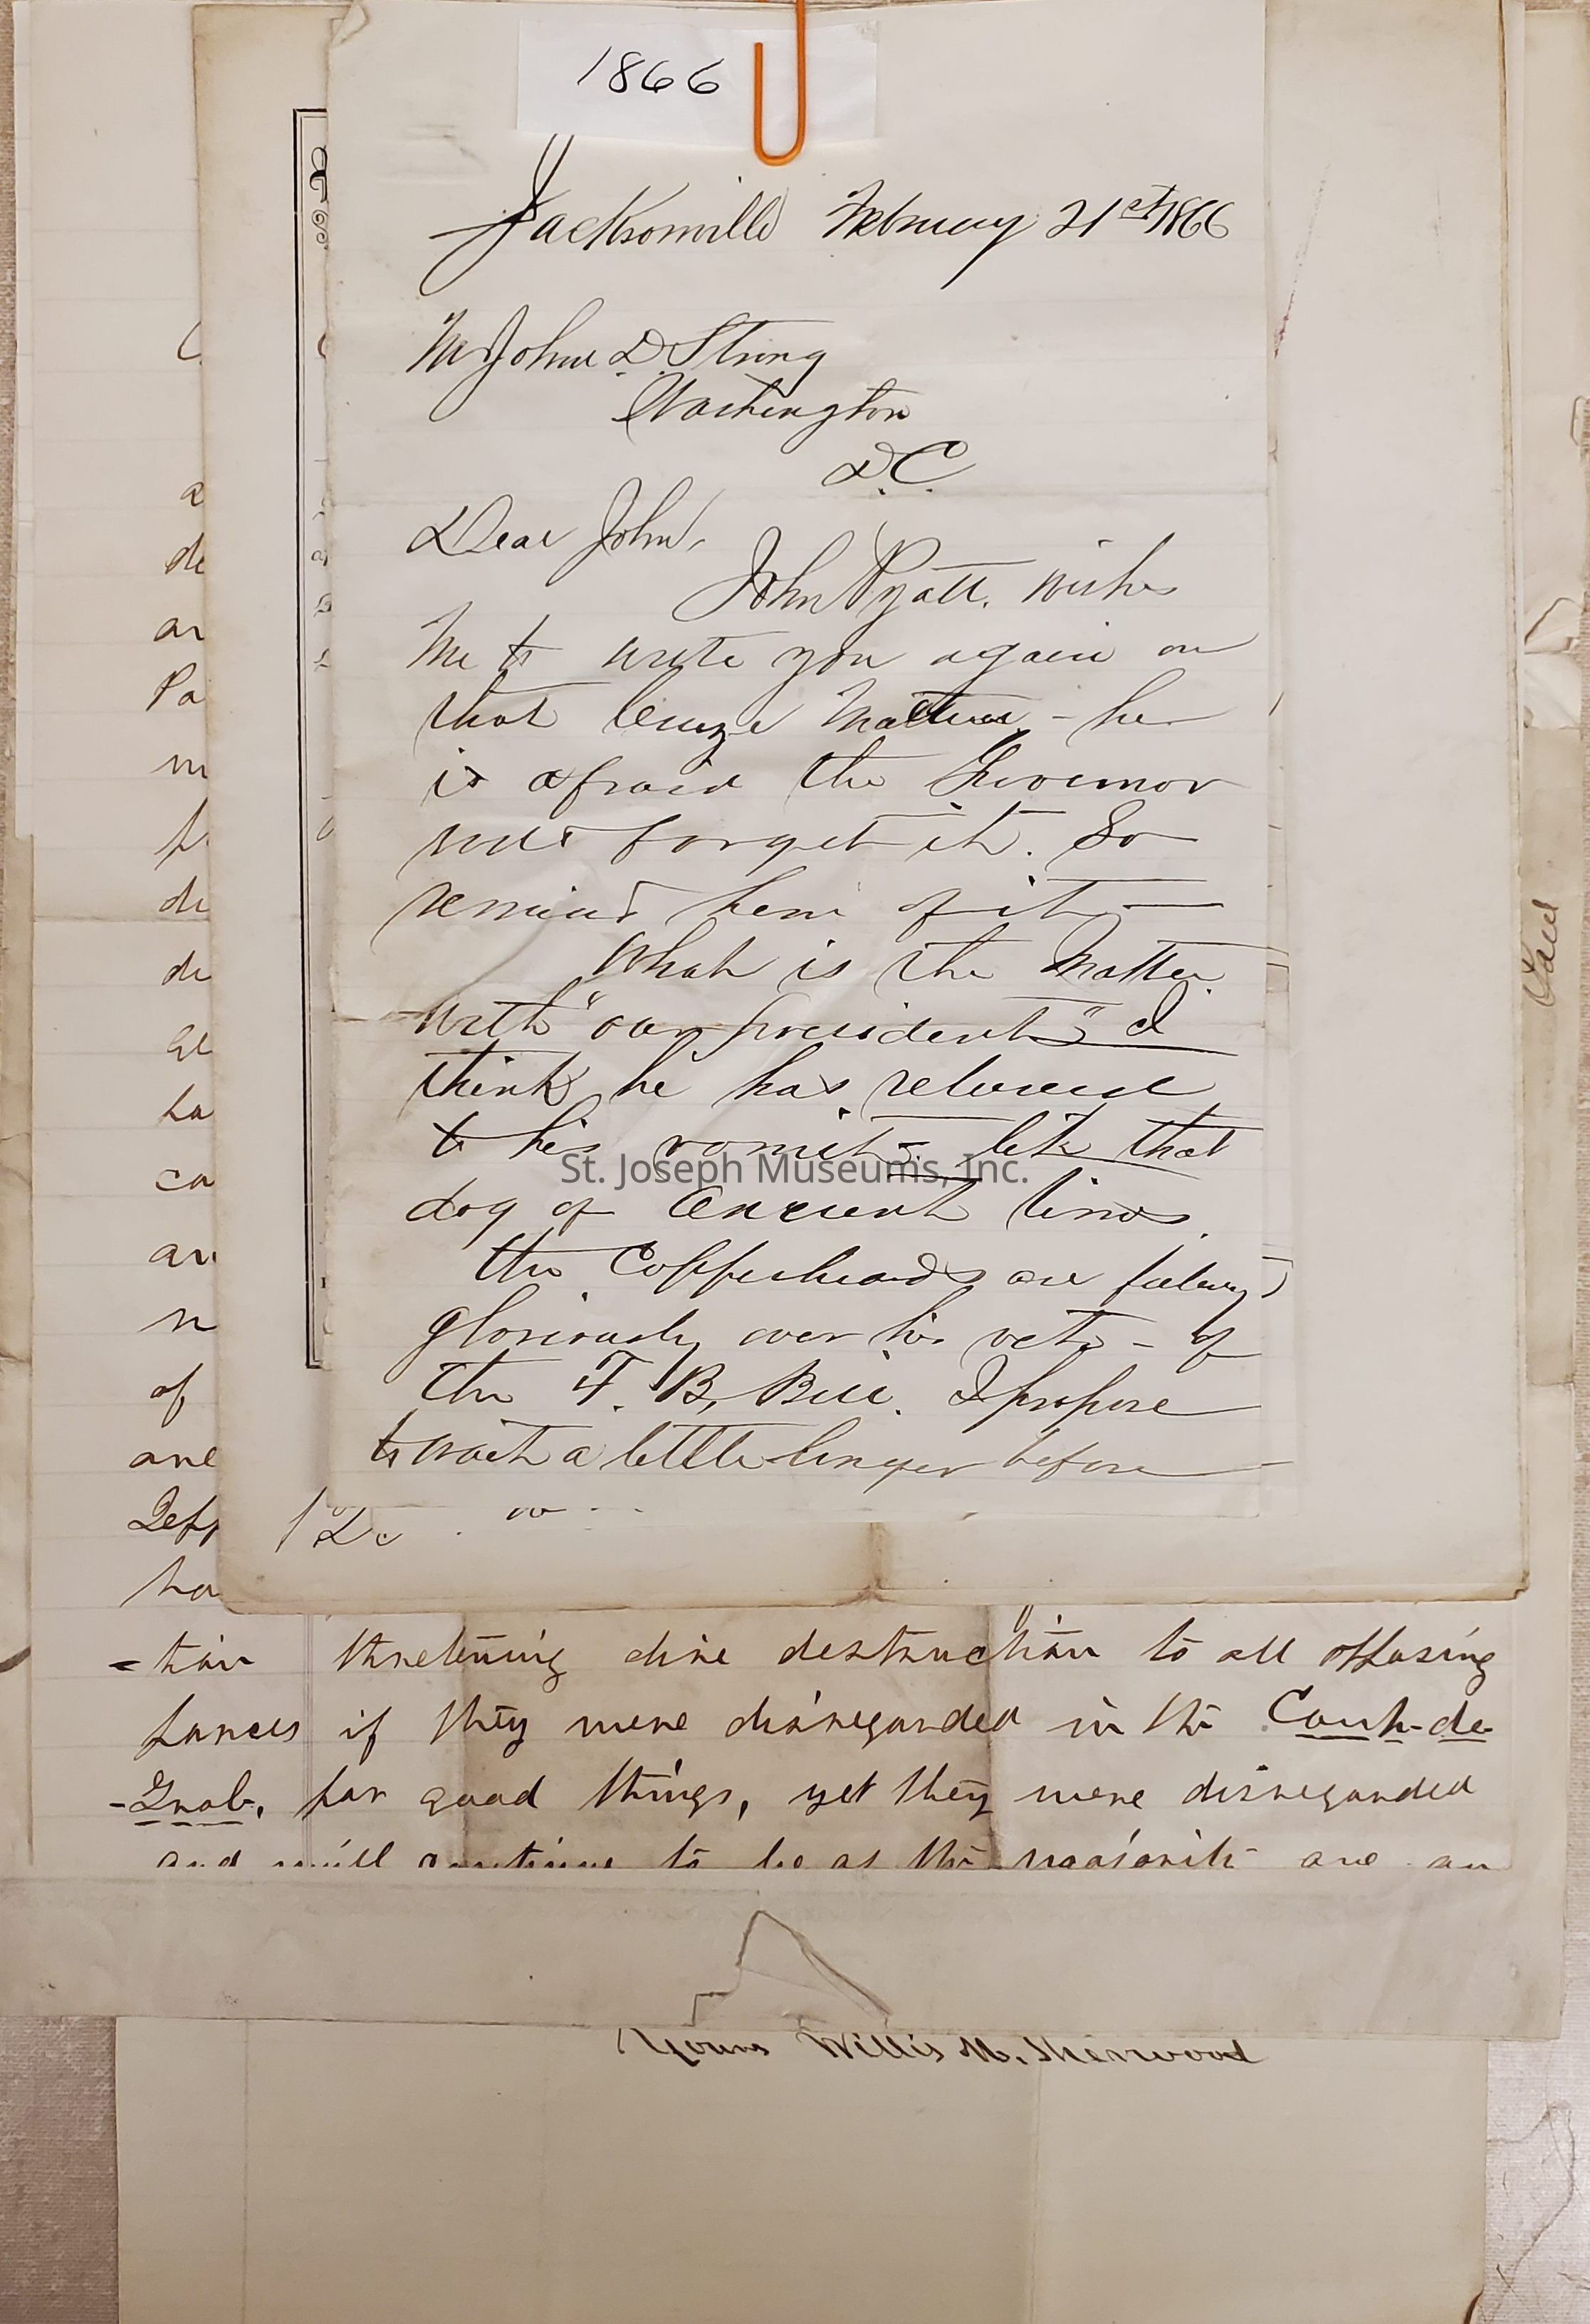 1866
Jacksonville February 21st 1866
Mr John D. Strong
Washington
D.C.
Dear John,
John Pyatt. wishes
me to write you again on
that matter - he
is afraid the Governor
will forget it. So
remind him of it -
What is the Matter
with "our president" I
think he has returned
to his vomit - like that
dog of ancient times.
St. Joseph Museums, Inc.
The Copperheads are feeling
gloriously over his veto - of
the F. B. Bill. I propose
to wait a little longer before
C.
a
de
ar
Pa
m
p
de
de
la
ca
an
n
of
ane
ha
= tion threlening dire destruction to all opposing
forces if they were disregarded in the Couh-de-
-Grab, for good things, yet they were disregarded
and will continue to be as the majority are an
Yours Willis M. Sherwood